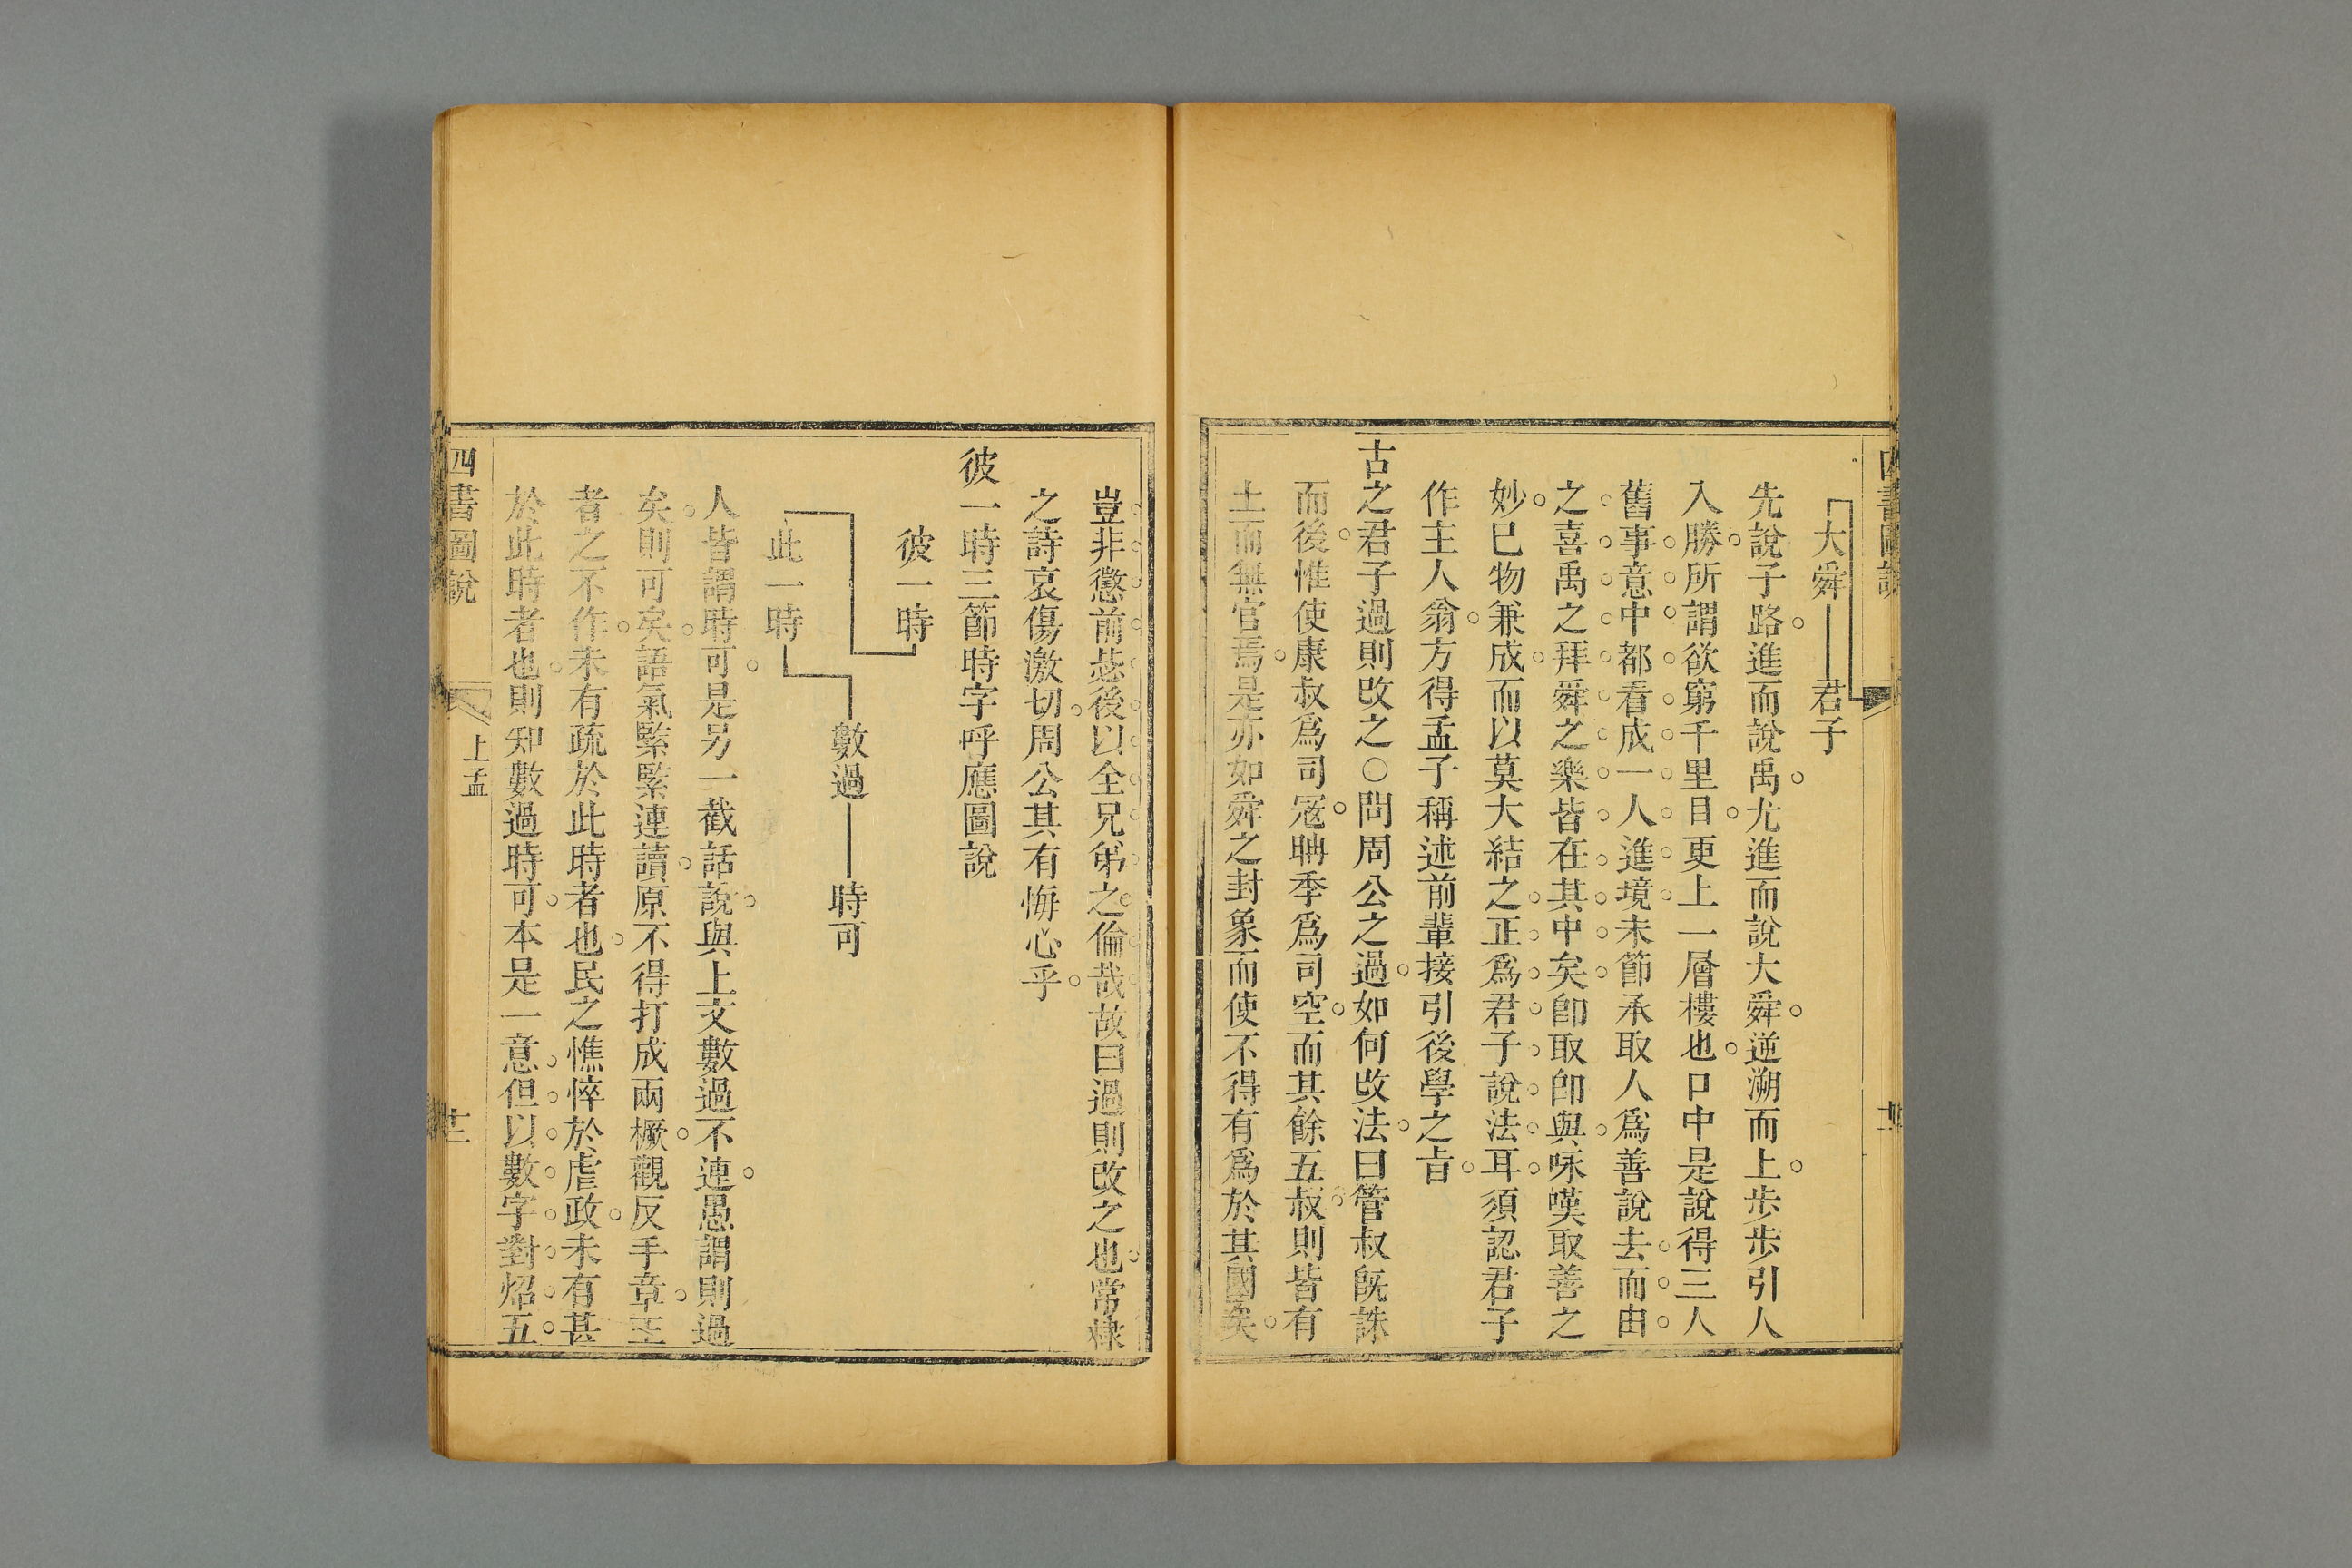 四書圖說
大舜 君子
先說子路進而說禹尤進而說大舜逆溯而上步步引人
入勝所謂欲窮千里目更上一層樓也口中是說得三人
舊事意中都看成一人進境未節承取人為善說去而由
之喜禹之拜舜之樂皆在其中矣卽取卽與咏嘆取善之
妙巳物兼成而以莫大結之正爲君子說法耳須認君子
作主人翁方得孟子稱述前輩接引後學之旨
古之君子過則改之○問周公之過如何改法曰管叔旣誅
而後惟使康叔爲司冦聃季爲司空而其餘五叔則皆有
土而無官焉是亦如舜之封象而使不得有爲於其國矣
豈非懲前毖後以全兄弟之倫哉故曰過則改之也常棣
之詩哀傷激切周公其有悔心乎
彼一時三節時字呼應圖說
彼一時
數過 時可
此一時
人皆謂時可是另一截話說與上文數過不連愚謂則過
矣則可矣語氣緊緊連讀原不得打成兩橛觀反手章王
者之不作未有疏於此時者也民之憔悴於虐政未有甚
於此時者也則知數過時可本是一意但以數字對炤五
四書圖說
上孟